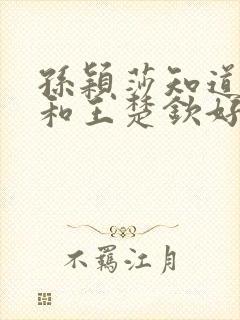 孫穎莎知道
和王楚欽好
不羈江月